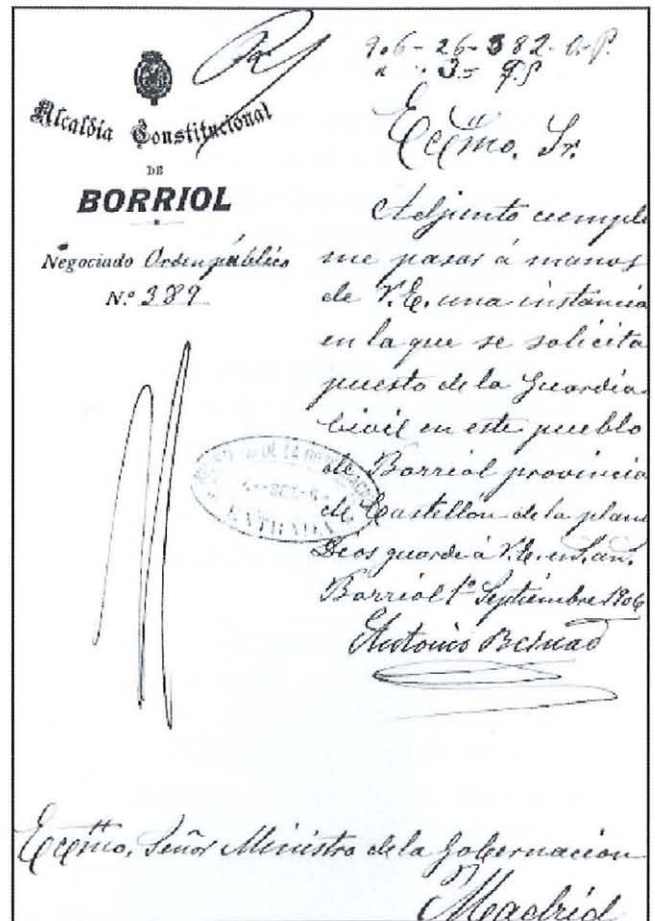 906-26-382-O-P.
" " 3 =
Alcaldía Constitucional
DE
BORRIOL
Negociado Orden público
N.º 389
Ecćmo. Sr.
Adjunto cumple
me pasar á manos
de V.E. una instancia
en la que se solicita
puesto de la Guardia
Civil en este pueblo
de Borriol provincia
de Castellon de la plana
Dios guarde á V.E. m. an.
Borriol 1º Septiembre 1906
Antonio Bernad
ENTRADA
Eccmo. Señor Ministro de la Gobernacion
Madrid